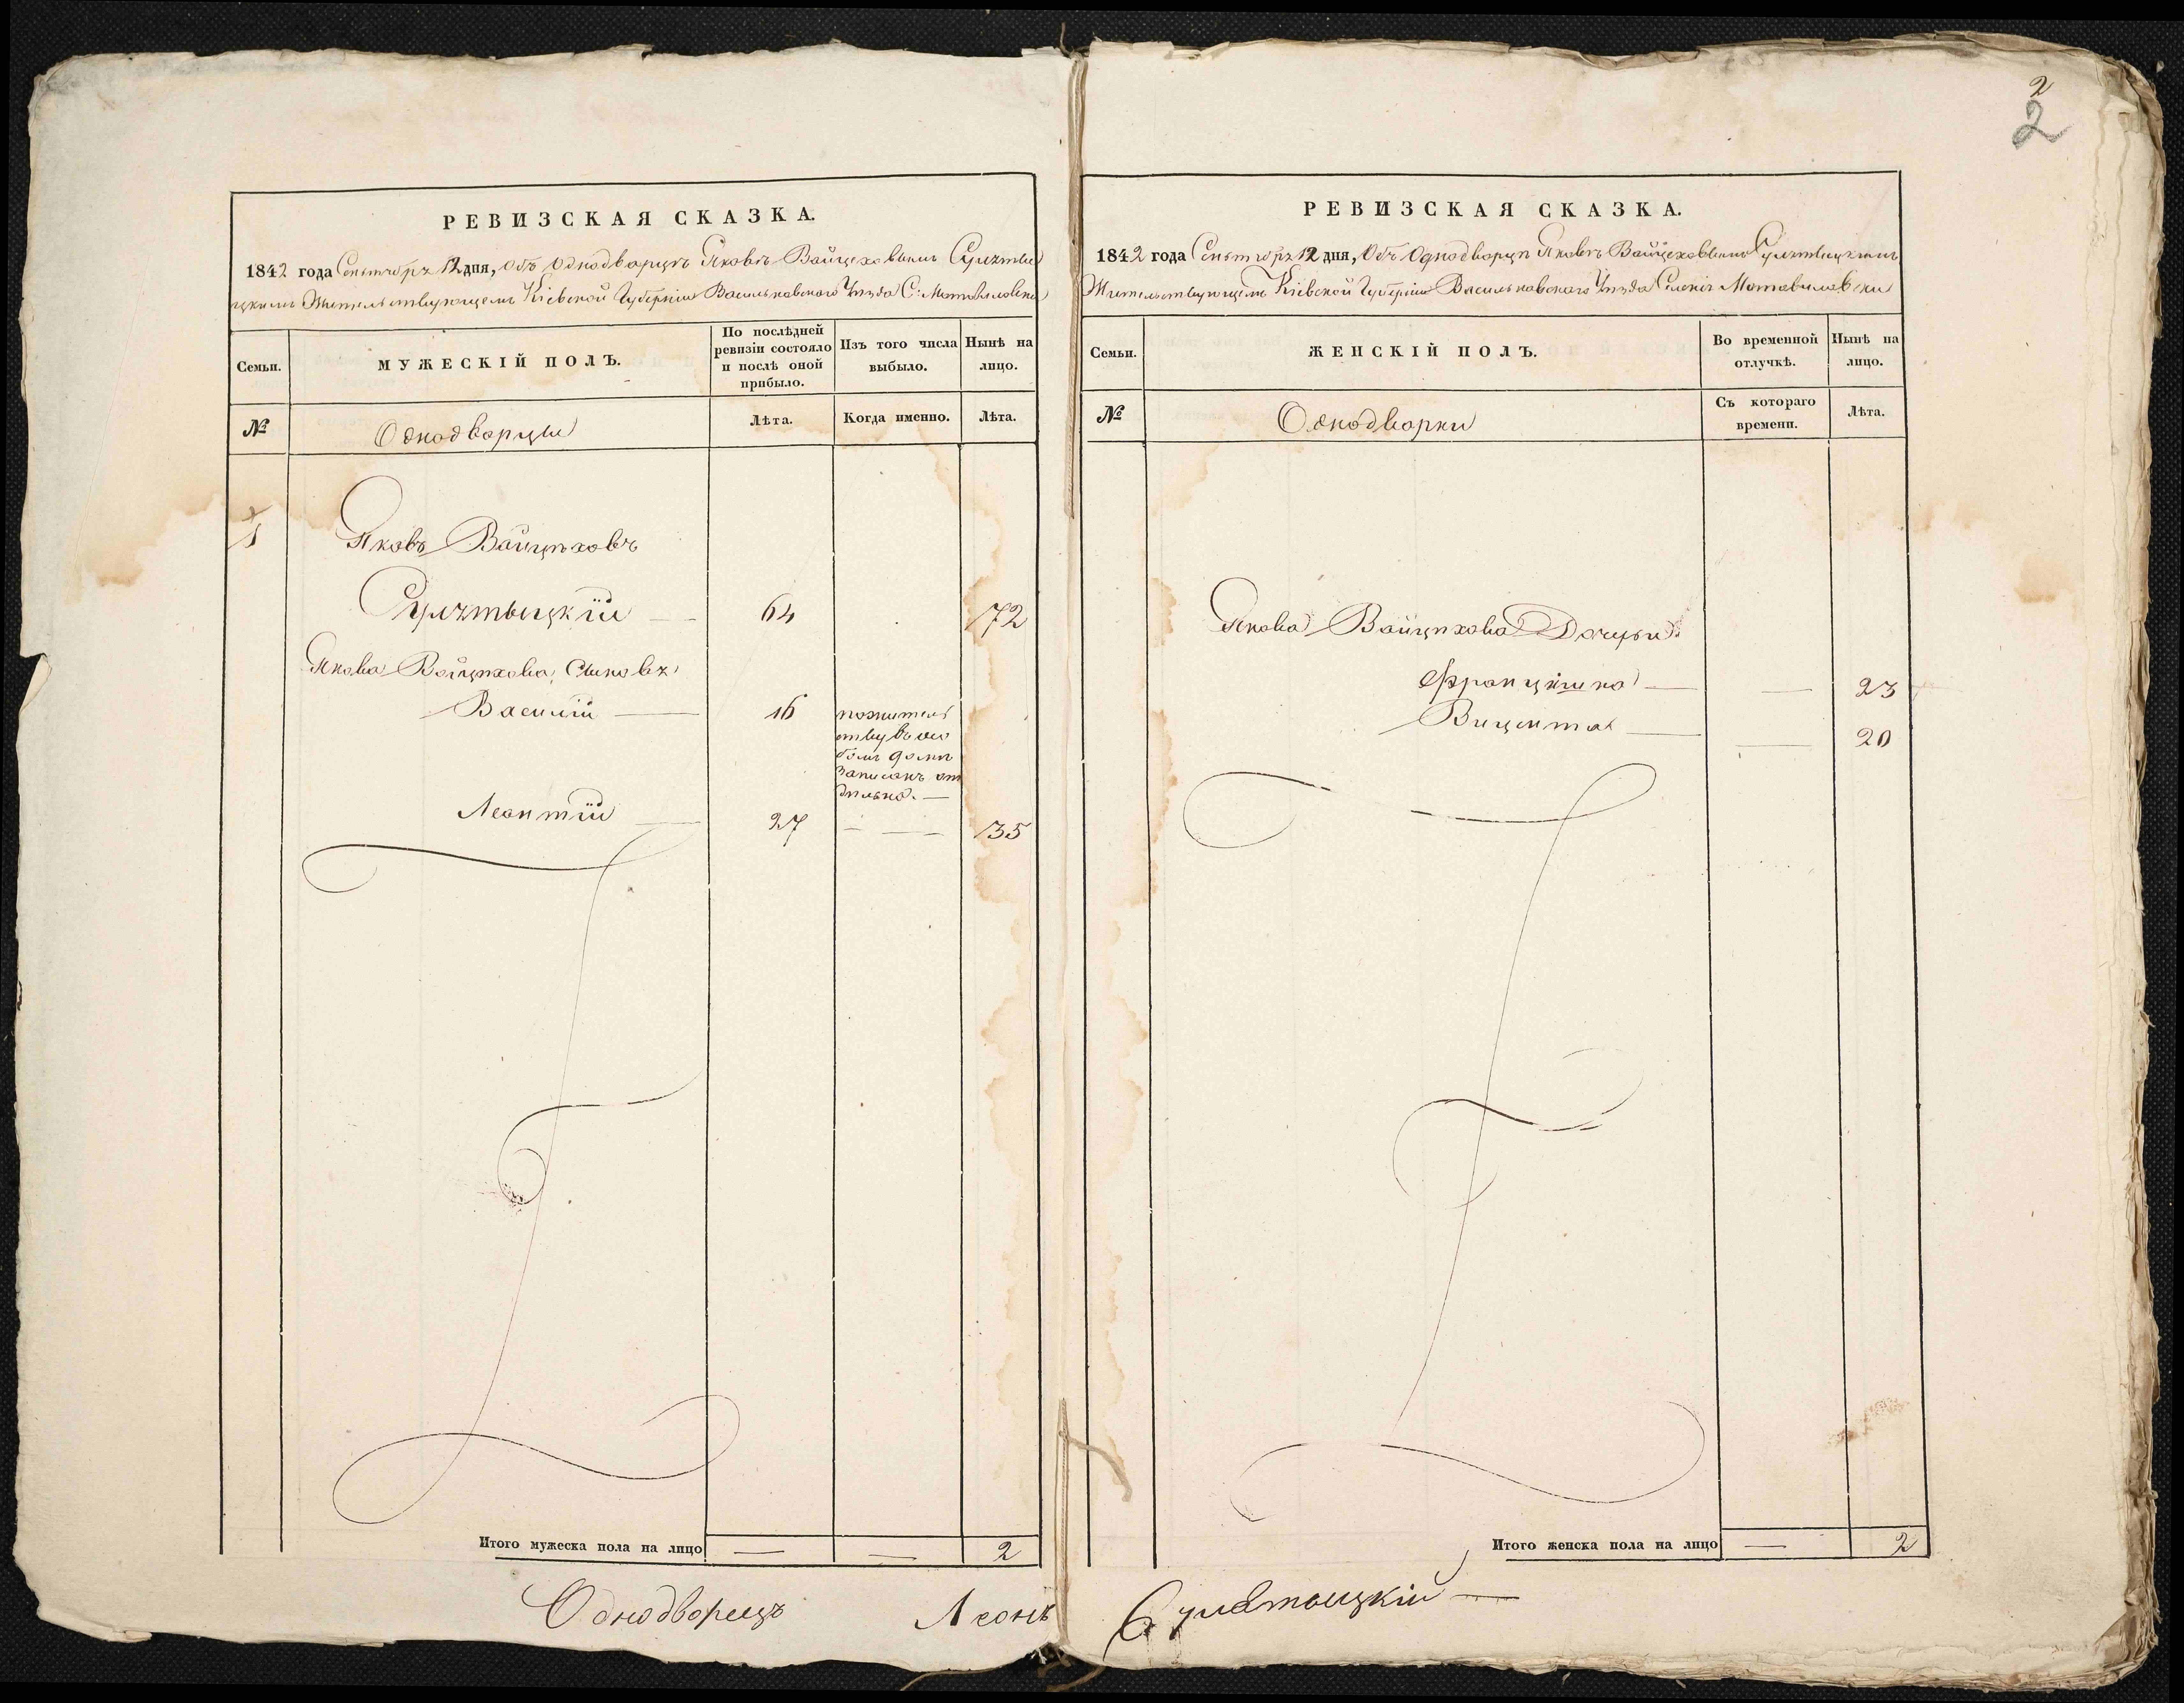 2
2
РЕВИЗСКАЯ СКАЗКА.
1842 года Сентября 12 дня, Объ Однодворцѣ Яковѣ Вайцеховымъ
Жительствующемъ Кіевской Губерніи Васильковскаго Уѣзда С: Мотовиловки
Семьи.
МУЖЕСКІЙ ПОЛЪ.
По послѣдней ревизіи состояло и послѣ оной прибыло.
Изъ того числа выбыло.
Нынѣ на лицо.
№
Однодворцы
Лѣта.
Когда именно.
Лѣта.
1
Яковъ Вайцѣховъ
64 72
Якова Вайцѣхова Сыновъя
Василій — 16
пожитель
ству въ осо
бомъ домѣ
записанъ от
дѣльно. —
Леонтій — 27 — — 35
Итого мужеска пола на лицо — — 2
Однодворецъ Леонъ
РЕВИЗСКАЯ СКАЗКА.
1842 года Сентября 12 дня, Объ Однодворцѣ Яковѣ Вайцеховымъ
Жительствующемъ Кіевской Губерніи Васильковскаго Уѣзда Селеніи Мотовиловки
Семьи.
ЖЕНСКІЙ ПОЛЪ.
Во временной отлучкѣ.
Нынѣ на лицо.
№
Однодворки
Съ котораго времени.
Лѣта.
Якова Вайцѣхова Дочери
Францишка — — 23
Вицента — — 20
Итого женска пола на лицо — 2